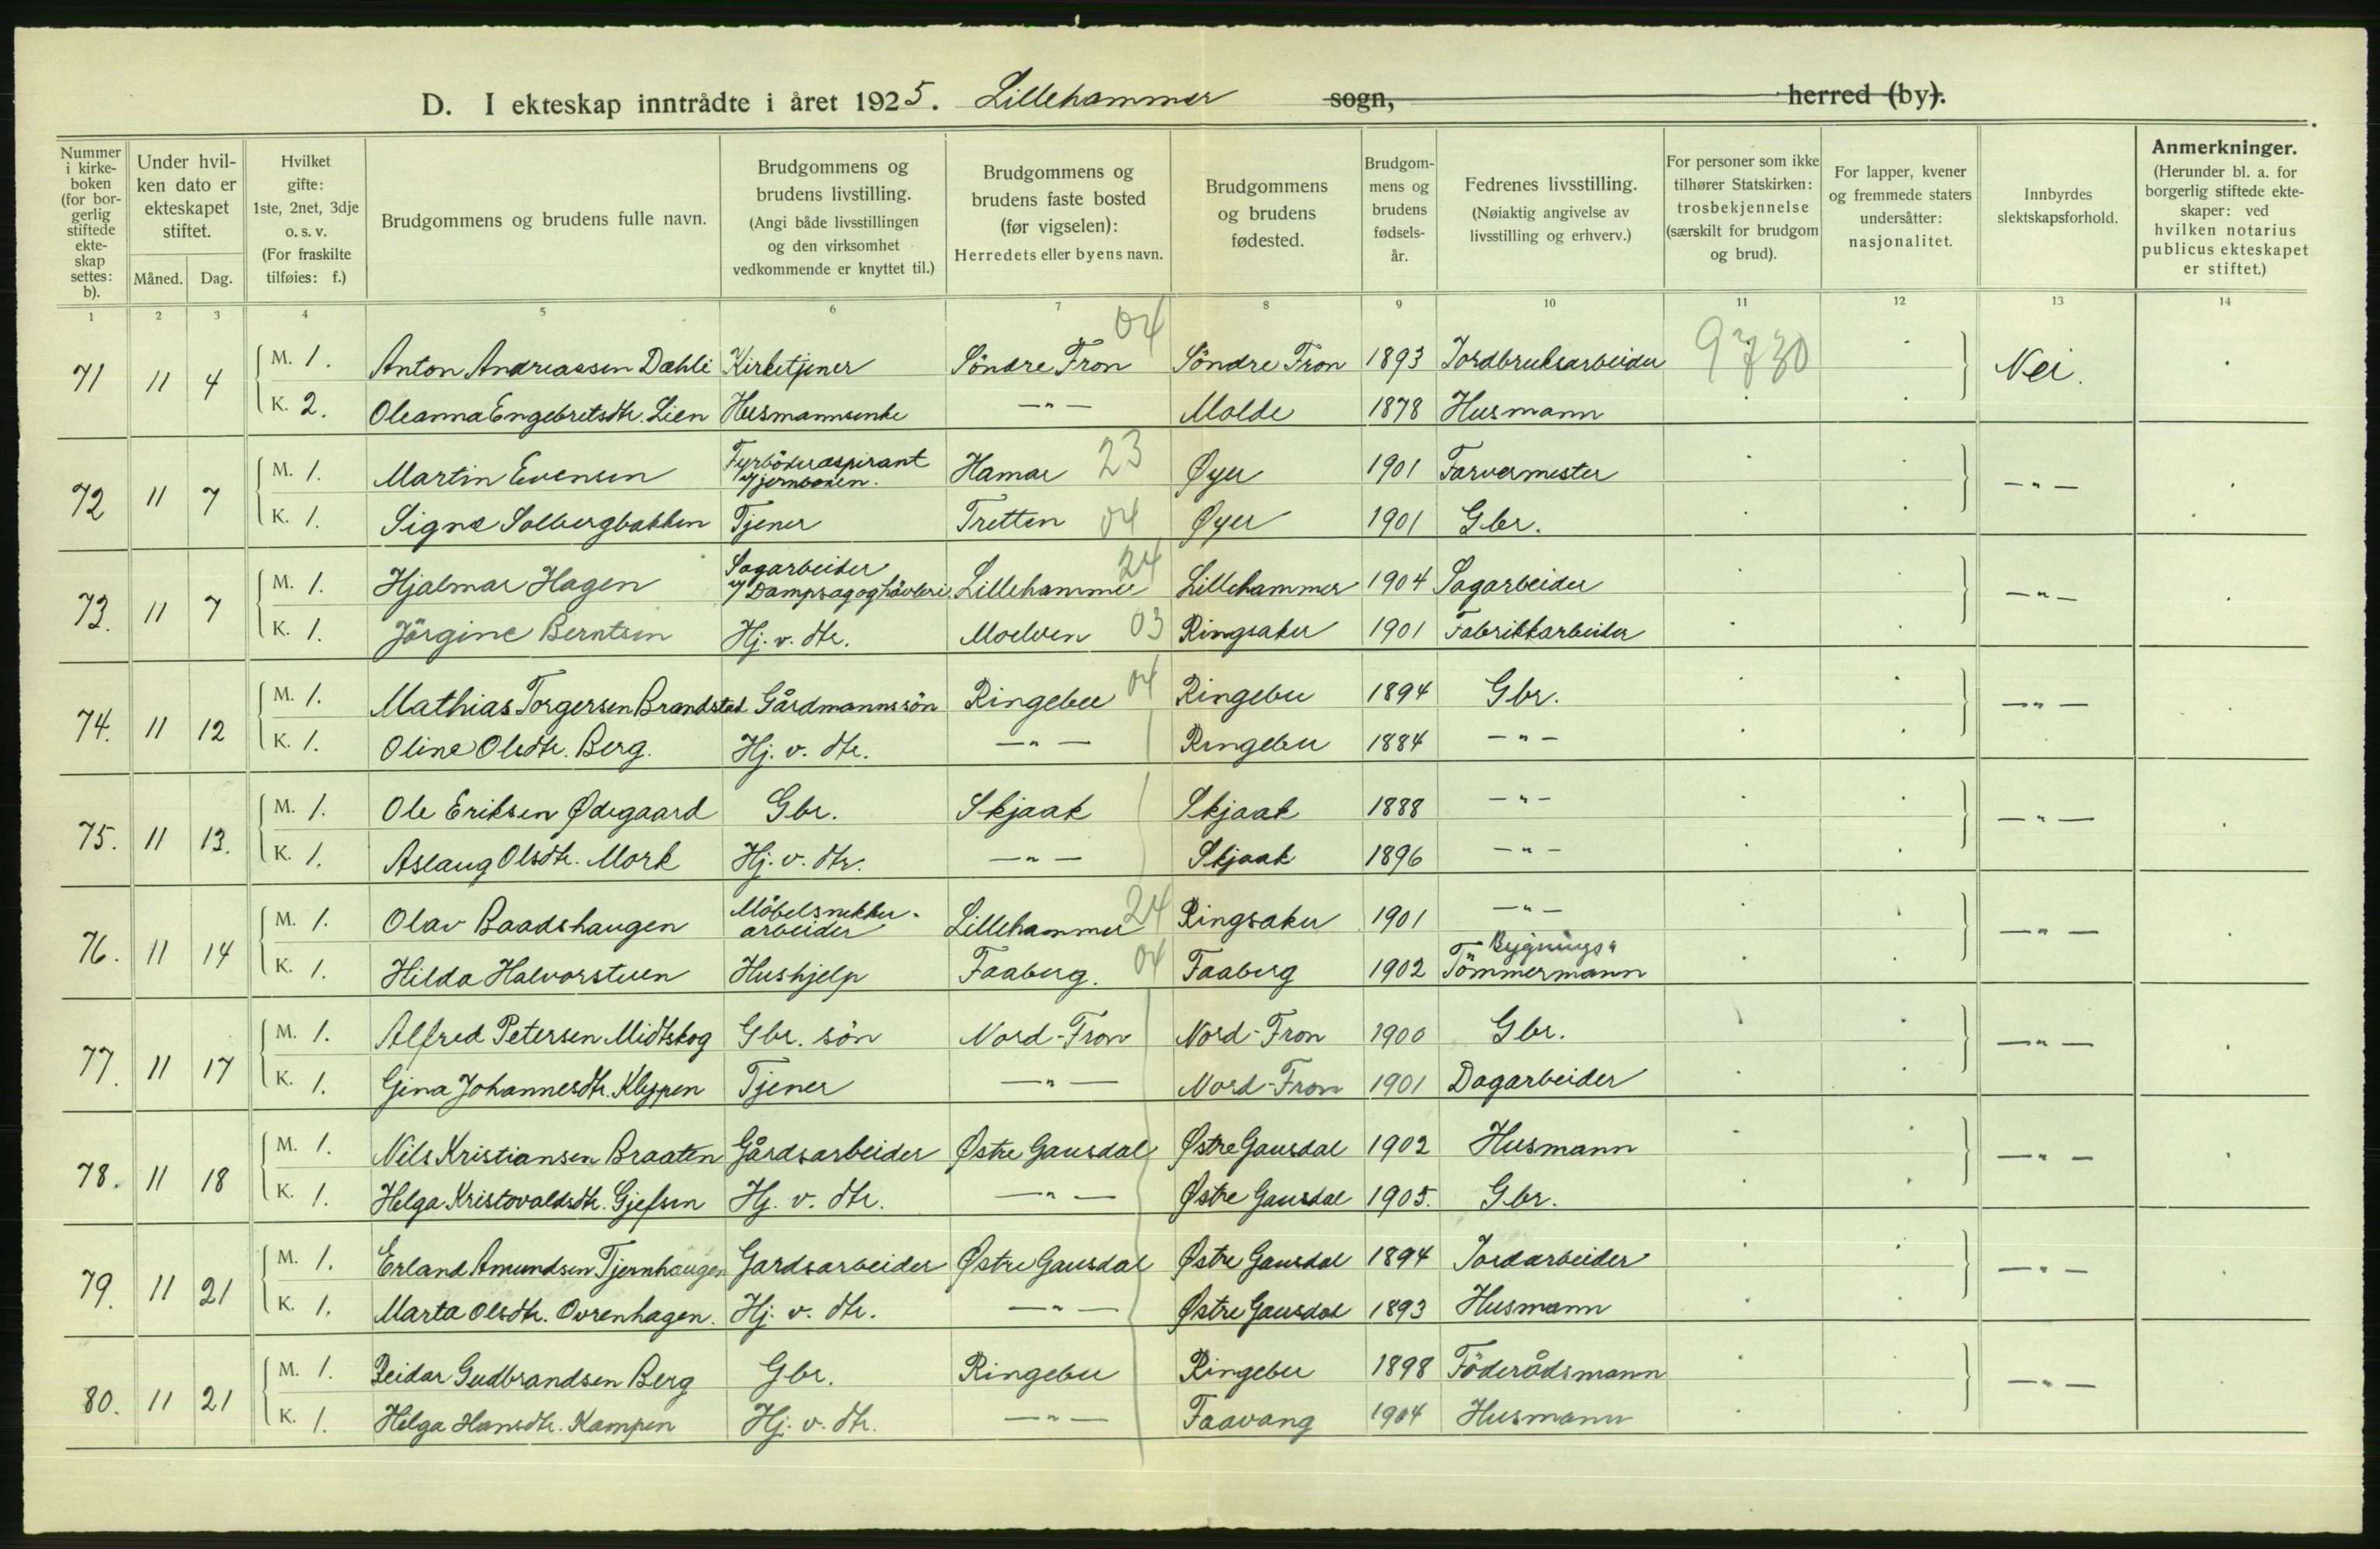 D. I ekteskap inntrådte i året 1925. Lillehammer sogn, herred (by).
Nummer i kirkeboken (for borgerlig stiftede ekteskap settes: b).
Under hvilken dato er ekteskapet stiftet.
Måned. Dag.
Hvilket gifte: 1ste, 2net, 3dje o. s. v. (For fraskilte tilføies: f.)
Brudgommens og brudens fulle navn.
Brudgommens og brudens livstilling. (Angi både livsstillingen og den virksomhet vedkommende er knyttet til.)
Brudgommens og brudens faste bosted (før vigselen): Herredets eller byens navn.
Brudgommens og brudens fødested.
Brudgommens og brudens fødselsår.
Fedrenes livsstilling. (Nøiaktig angivelse av livsstilling og erhverv.)
For personer som ikke tilhører Statskirken: trosbekjennelse (særskilt for brudgom og brud).
For lapper, kvener og fremmede staters undersåtter: nasjonalitet.
Innbyrdes slektskapsforhold.
Anmerkninger. (Herunder bl. a. for borgerlig stiftede ekteskaper: ved hvilken notarius publicus ekteskapet er stiftet.)
1 2 3 4 5 6 7 8 9 10 11 12 13 14
04
71 11 4 M. 1. Anton Andreassen Dæhli Kirketjener Söndre Fron Söndre Fron 1893 Jordbruksarbeider 9730 Nei.
K. 2. Oleanna Engebretsdtr. Lien Husmannsenke —„— Molde 1878 Husmann
72 11 7 M. 1. Martin Evensen Fyrböderaspirant v/jernbanen. Hamar 23 Øyer 1901 Farvermester —„—
K. 1. Signe Solbergbakken Tjener Tretten 04 Øyer 1901 Gbr.
73. 11 7 M. 1. Hjalmar Hagen Sagarbeider v/ Dampsag og hövleri Lillehammer 24 Lillehammer 1904 Sagarbeider —„—
K. 1. Jörgine Berntsen Hj. v. dtr. Moelven 03 Ringsaker 1901 Fabrikkarbeider
74. 11 12 M. 1. Mathias Torgersen Brandstad Gårdmannssön Ringebu 04 Ringebu 1894 Gbr. —„—
K. 1. Oline Olsdtr. Berg. Hj. v. dtr. —„— Ringebu 1884 —„—
75. 11 13. M. 1. Ole Eriksen Ødegaard Gbr. Skjaak Skjaak 1888 —„— —„—
K. 1. Aslaug Olsdtr. Mork Hj. v. dtr. —„— Skjaak 1896 —„—
76. 11 14 M. 1. Olav Baadshaugen Möbelsnekkerarbeider Lillehammer 24 Ringsaker 1901 —„— —„—
K. 1. Hilda Halvorstuen Hushjelp Faaberg. 04 Faaberg 1902 Bygnings„ Tömmermann
77. 11 17 M. 1. Alfred Petersen Midtskog Gbr. sön Nord-Fron Nord-Fron 1900 Gbr. —„—
K. 1. Gina Johannesdtr. Kleppen Tjener —„— Nord-Fron 1901 Dagarbeider
78. 11 18 M. 1. Nils Kristiansen Braaten Gårdsarbeider Østre Gausdal Østre Gausdal 1902 Husmann —„—
K. 1. Helga Kristovaldsdtr. Gjefsen Hj. v. dtr. —„— Østre Gausdal 1905. Gbr.
79. 11 21 M. 1. Erland Amundsen Tjernhaugen Gardsarbeider Østre Gausdal Østre Gausdal 1894 Jordarbeider —„—
K. 1. Marta Olsdtr. Ovrenhagen. Hj. v. dtr. —„— Østre Gausdal 1893 Husmann
80. 11 21 M. 1. Reidar Gudbrandsen Berg Gbr. Ringebu Ringebu 1898 Föderådsmann —„—
K. 1. Helga Hansdtr. Kampen Hj. v. dtr. —„— Faavang 1904 Husmann